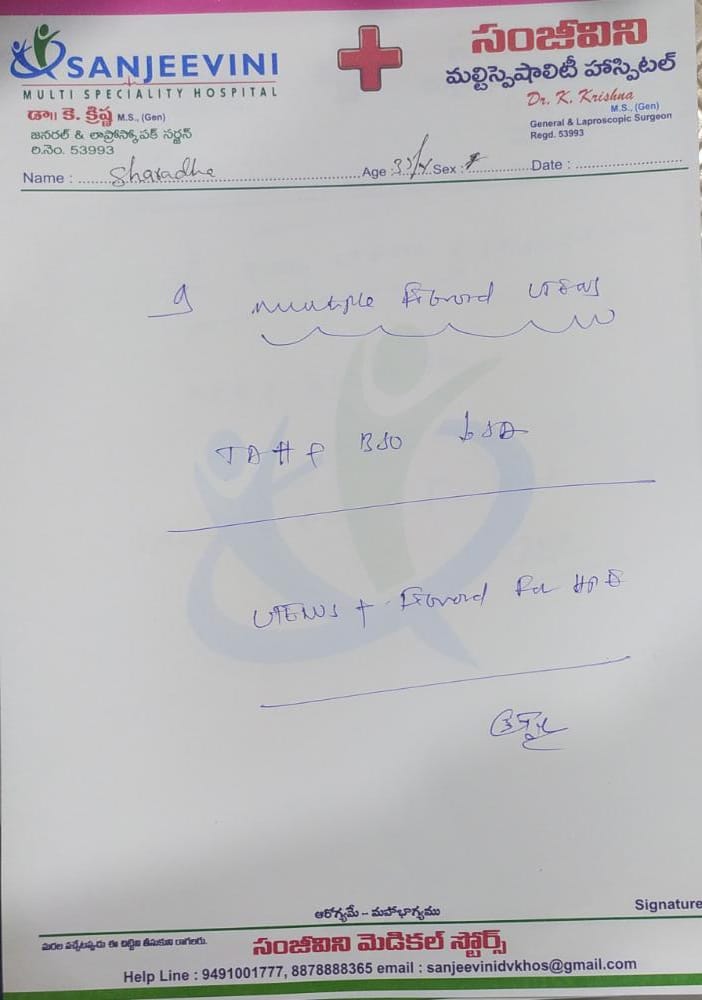 SANJEEVINI
MULTI SPECIALITY HOSPITAL
డా|| కె. క్రిష్ణ M.S., (Gen)
జనరల్ & లాప్రోస్కోపిక్ సర్జన్
రి.నెం. 53993
సంజీవిని
మల్టిస్పెషాలిటీ హాస్పిటల్
Dr. K. Krishna
M.S., (Gen)
General & Laproscopic Surgeon
Regd. 53993
Name : Sharadha Age : 35/Y Sex : F Date :
multiple Fibroid uterus
TAH BSO
uterus + Fibroid For HPE
Signature
ఆరోగ్యమే – మహాభాగ్యము
మరల వచ్చేటప్పుడు ఈ చిట్టిని తీసుకుని రాగలరు.
సంజీవిని మెడికల్ స్టోర్స్
Help Line : 9491001777, 8878888365 email : sanjeevinidvkhos@gmail.com